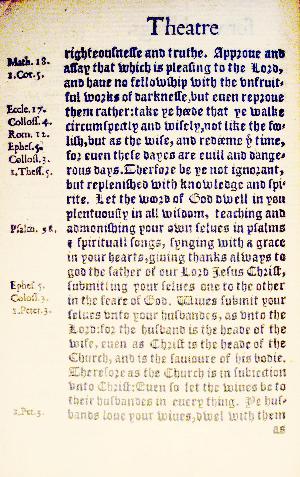 Theatre
righteousnesse and truthe. Approue and
Math. 18. assay that which is pleasing to the Lord,
1.Cor.5. and haue no fellowship with the vnfruit-
ful works of darknesse, but euen reproue
Eccle.17. them rather: take ye hæde that ye walke
Coloss.4. circumspectly and wisely, not like the fœ-
Rom. 12. lish, but as the wise, and redæme yͤ time,
Ephes.5. for euen these dayes are euill and dange-
Coloss.3. rous days. Therfore be ye not ignorant,
1.Thess.5. but replenished with knowledge and spi-
rite. Let the word of God dwell in you
plentuously in all wisdom, teaching and
Psalm. 98. admonishing your own selues in psalms
& spirituall songs, synging with a grace
in your hearts, giuing thanks always to
god the father of our Lord Jesus Christ,
Ephes.5. submitting your selues one to the other
Coloss.3. in the feare of God. Wiues submit your
1.Peter.3. selues vnto your husbandes, as vnto the
Lord: for the husband is the heade of the
wife, euen as Christ is the heade of the
Church, and is the sauioure of his bodie.
Therefore as the Church is in subiection
vnto Christ: Euen so let the wiues be to
their husbandes in euery thing. Ye hus-
1.Pet.3. bands loue your wiues, dwel with them
as